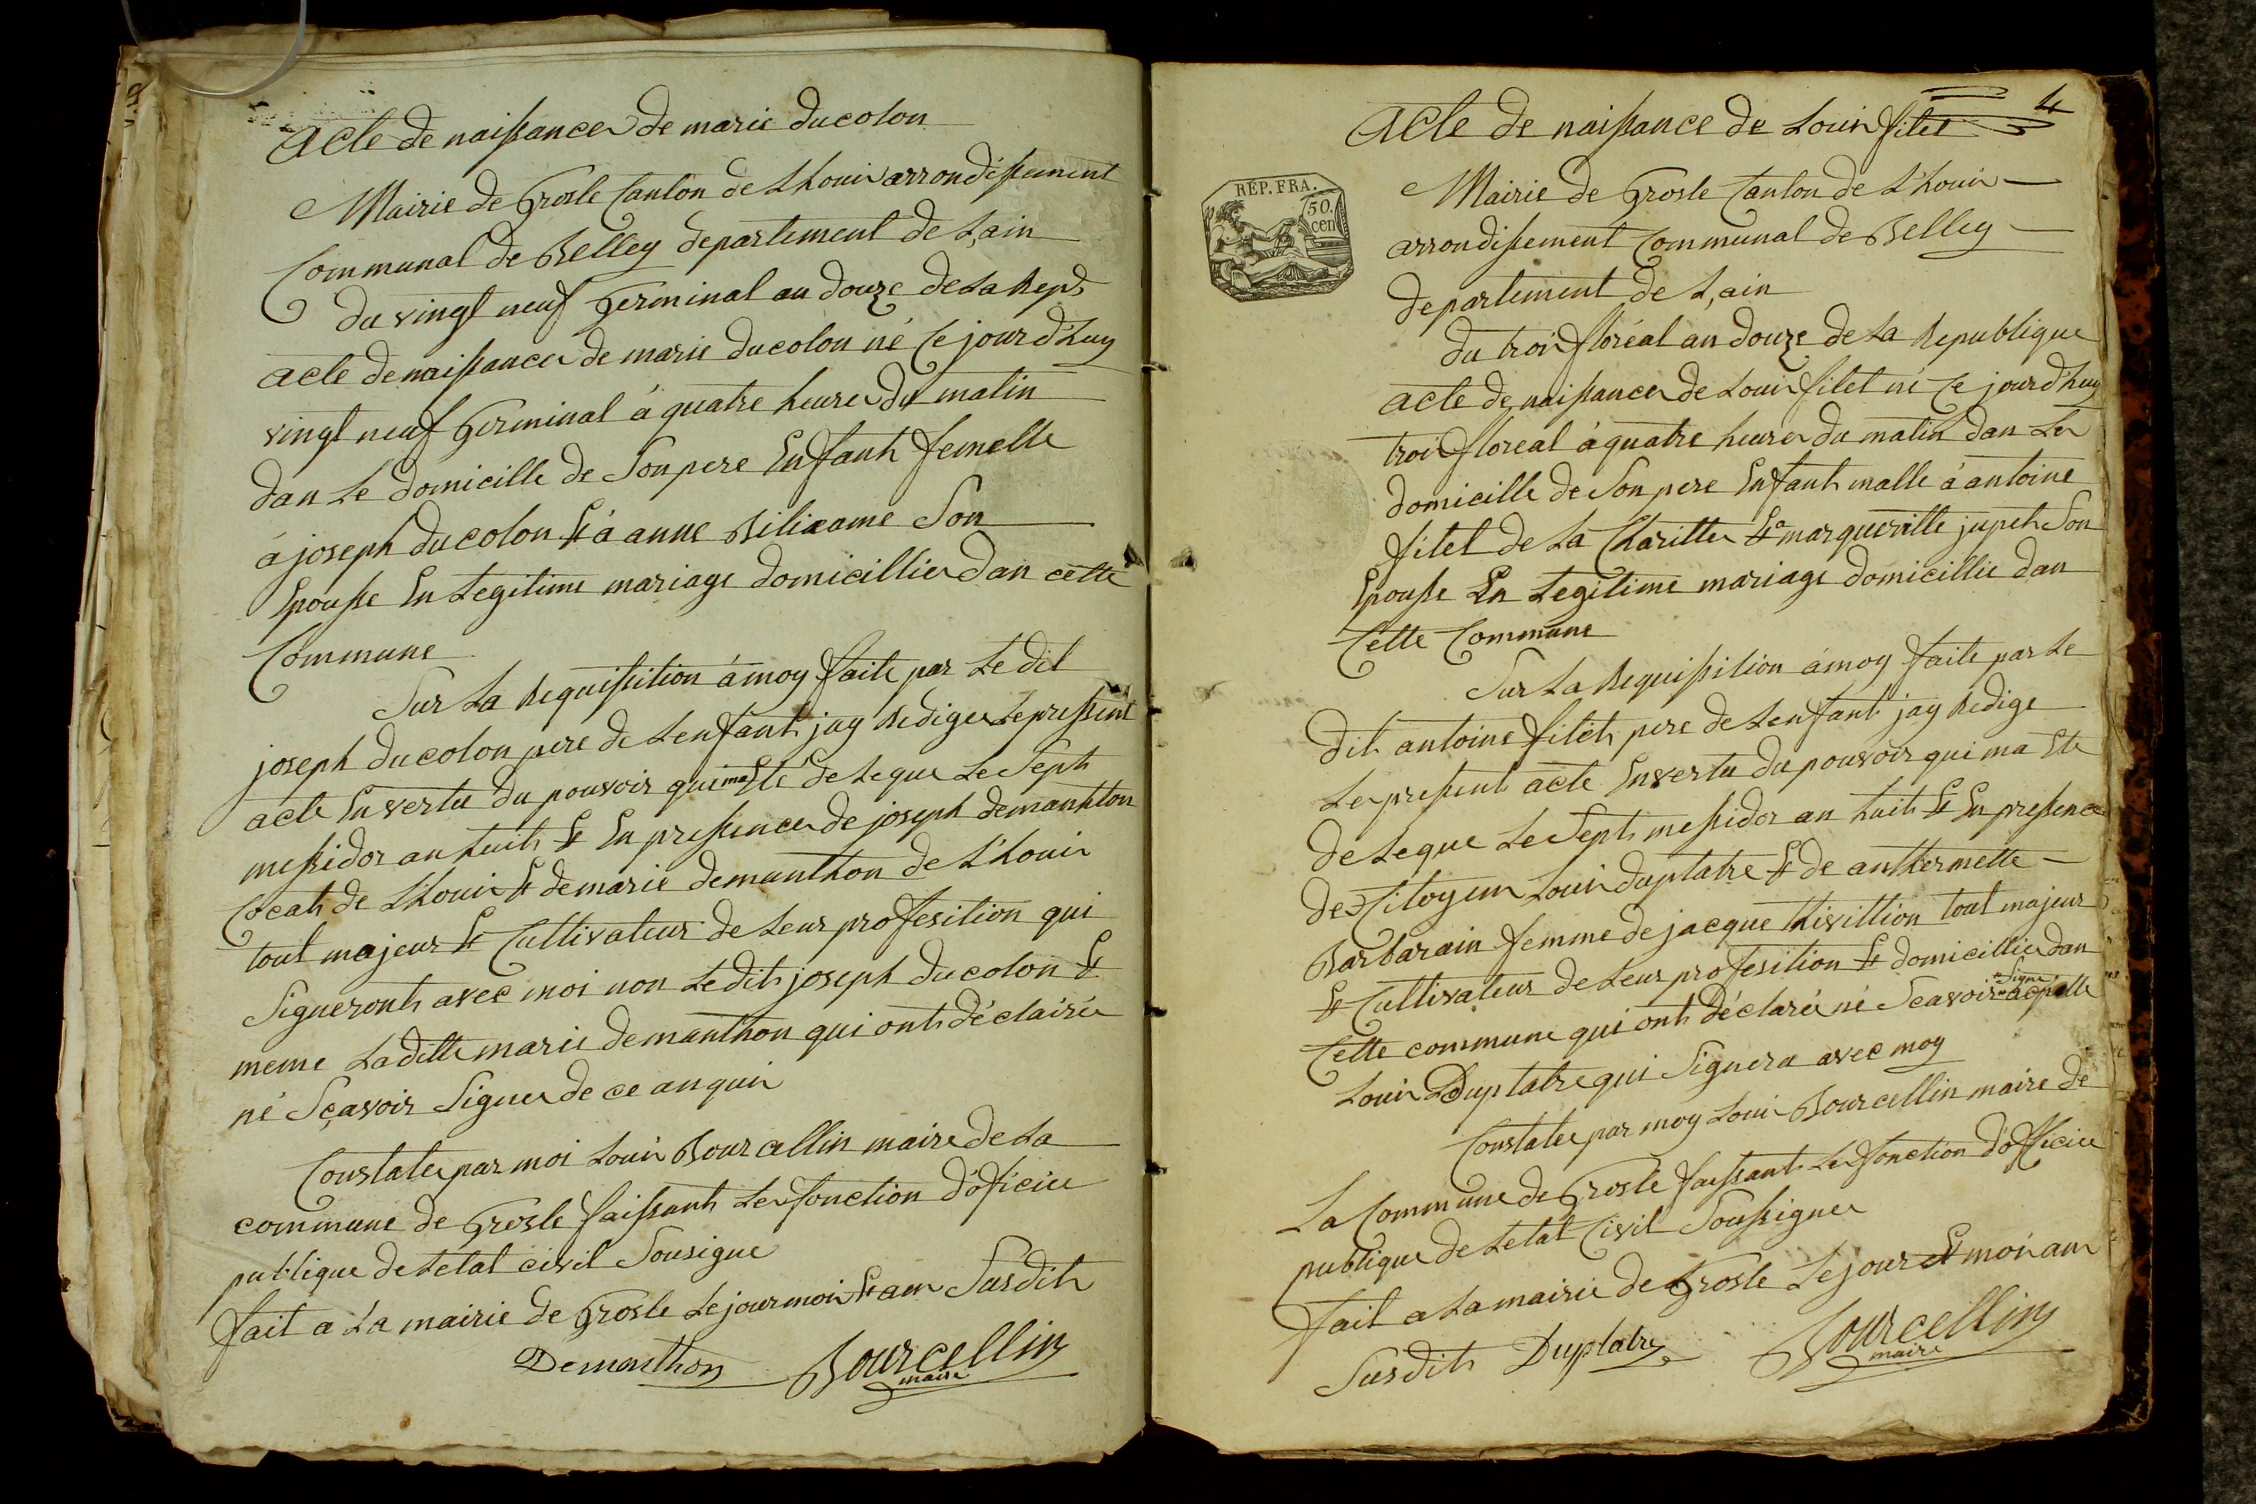 acte de naissance de marie ducolon
Mairie de Grosle Canton de Lhouis arrondissement
Communal de Belley departement de L'ain
du vingt neuf Germinal an douze de La Rep
acte de naissance de marie ducolon né Ce jourd'huy
vingt neuf Germinal á quatre heures du matin
dan Le domicille de Son pere Enfant femelle
á joseph ducolon Et á anne Son
Epousse En Legitime mariage domicillies dan cette
Commune
Sur La Requissition á moy faite par Le dit
joseph ducolon pere de Lenfant jay Rediger Le pressent
acte En vertu du pouvoir qui ma Eté de Legue Le Sept
messidor an huit Et En pressence de joseph demanthon
Cocat de Lhouis Et de marie demanthon de L'houis
tout majeur Et Cultivateur de Leur profesition qui
Signeront avec moi non Le dit joseph ducolon Et
meme La ditte marie demanthon qui ont déclairés
né Sçavoir Signer de ce anquis
Constater par moi Louis Bourcellin maire de La
commune de Grosle faissant Les fonction d'oficier
publique de Letat civil Sousigne
fait a La mairie de Grosle Le jour mois Et an Susdit
Demanthon Bourcellin
maire
4
Acte de naissance de Louis filet
REP. FRA.
50.
cen
Mairie de Grosle Canton de L'houis
arrondissement Communal de Belley
departement de L'ain
du trois floréal an douze de La Republique
acte de naissance de Louis filet né Ce jourd'huy
trois floreal á quatre heures du matin dan Le
domicille de Son pere Enfant malle á antoine
filet de La Charitte Et a margueritte jupet Son
Epousse En Legitime mariage domicillie dan
Cette Commune
Sur La Requissition á moy faite par Le
dit antoine filet pere de Lenfant jay Redige
Le pressent acte En vertu du pouvoir qui ma Ete
de Legue Le Sept messidor an huit Et En pressence
de Citoyen Louis duplatre Et de anthermette
Barbarain femme de jacque thivillion tout majeur
Et Cultivateur de Leur profesition Et domicillier dan
Cette commune qui ont déclaré né Sçavoir Signe
Louis Duplatre qui Signera avec moy
Constater par moy Louis Bourcellin maire de
La Commune de Grosle faissant Les fonction d'officier
publique de Letat Civil Soussigner
fait a La mairie de Grosle Le jour Et mois an
Susdit Duplatre Bourcellin
maire